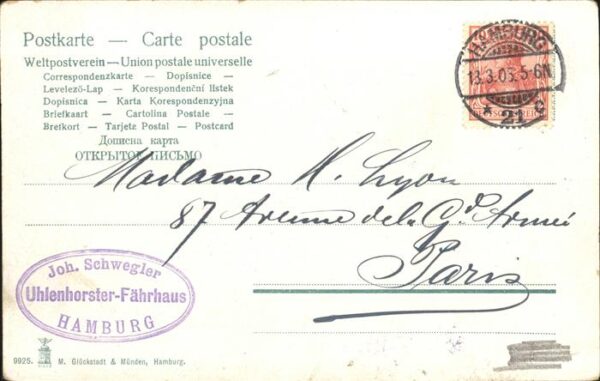 Postkarte — Carte postale
Weltpostverein — Union postale universelle
Correspondenzkarte — Dopisnice —
Levelező-Lap — Korespondenční lístek
Dopisnica — Karta Korespondenzyjna
Briefkaart — Cartolina Postale —
Brefkort — Tarjetz Postal — Postcard
Дописна карта
ОТКРЫТОЕ ПИСЬМО
HAMBURG
13.3.05.5-6N
* 21 c
DEUTSCHES REICH
Madame M. Lyon
87 Avenue de la Gde Armée
Paris
Joh. Schwegler
Uhlenhorster-Fährhaus
HAMBURG
9925.
M. Glückstadt & Münden, Hamburg.